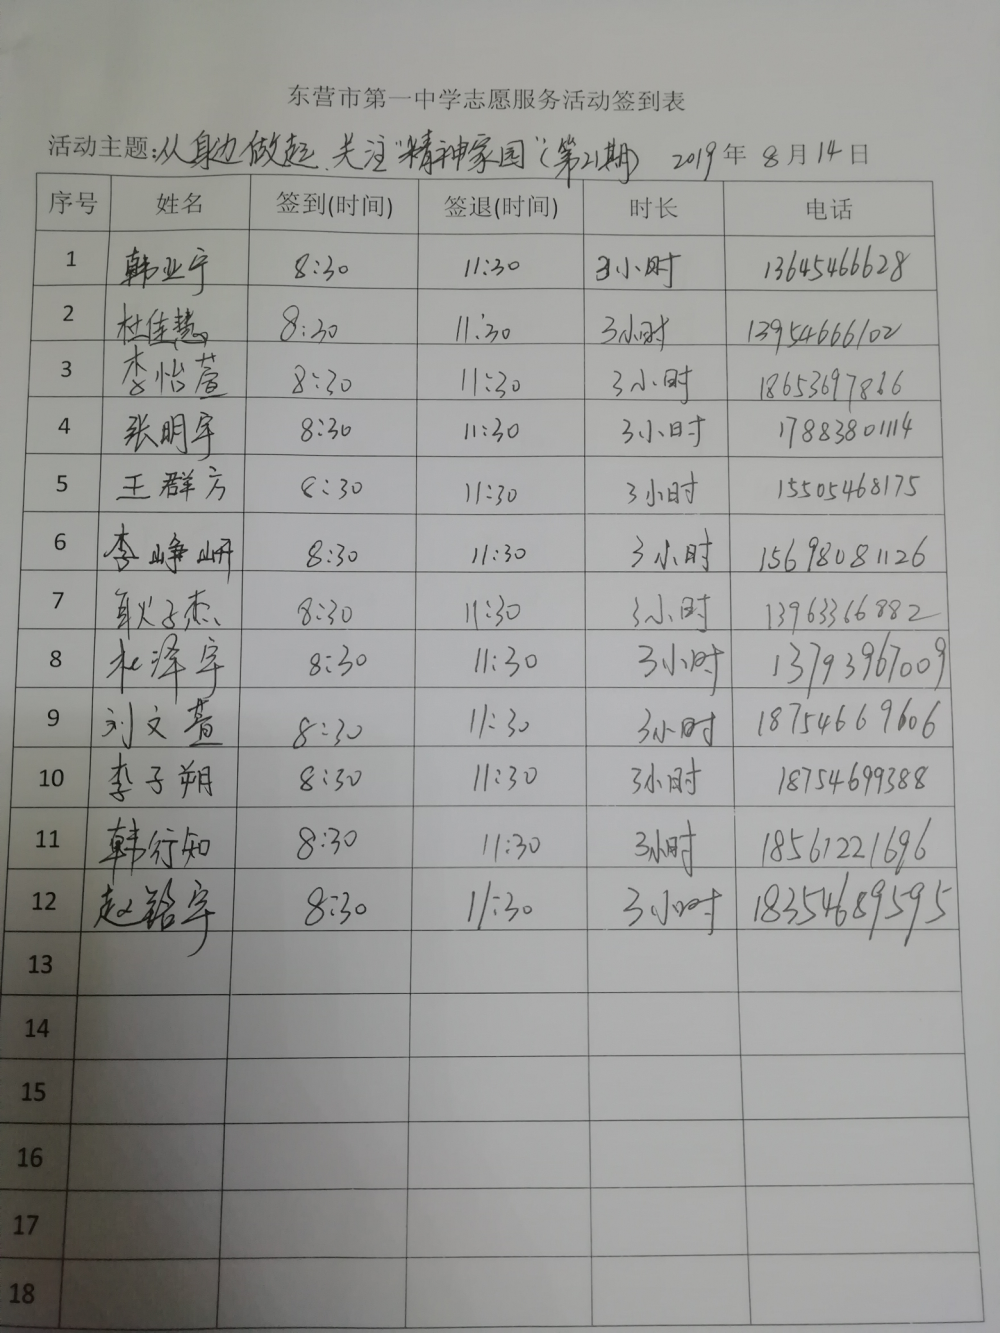 东营市第一中学志愿服务活动签到表
活动主题:从身边做起 关注"精神家园"(第21期) 2019年8月14日
序号 姓名 签到(时间) 签退(时间) 时长 电话
1 韩亚宁 8:30 11:30 3小时 13645466628
2 杜佳慧 8:30 11:30 3小时 13954666102
3 李怡萱 8:30 11:30 3小时 18653697866
4 张明宇 8:30 11:30 3小时 17883801114
5 王群方 8:30 11:30 3小时 15505468175
6 李峥妍 8:30 11:30 3小时 15698081126
7 耿子杰 8:30 11:30 3小时 13963366882
8 杜泽宇 8:30 11:30 3小时 13793967009
9 刘文萱 8:30 11:30 3小时 18754669606
10 李子朔 8:30 11:30 3小时 18754699388
11 韩行知 8:30 11:30 3小时 18561221696
12 赵铭宇 8:30 11:30 3小时 18354689595
13
14
15
16
17
18